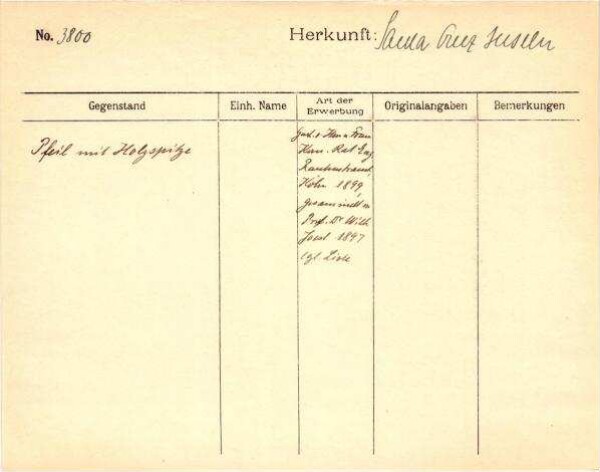 No. 3800
Herkunft: Santa Cruz Inseln
Gegenstand
Einh. Name
Art der
Erwerbung
Originalangaben
Bemerkungen
Pfeil mit Holzspitze
Herr u. Frau
Kom. Rat Eug.
Rautenstrauch,
Köln 1899,
gesammelt v.
Prof. Dr. Wilh.
Joest 1897
cgl. Liste